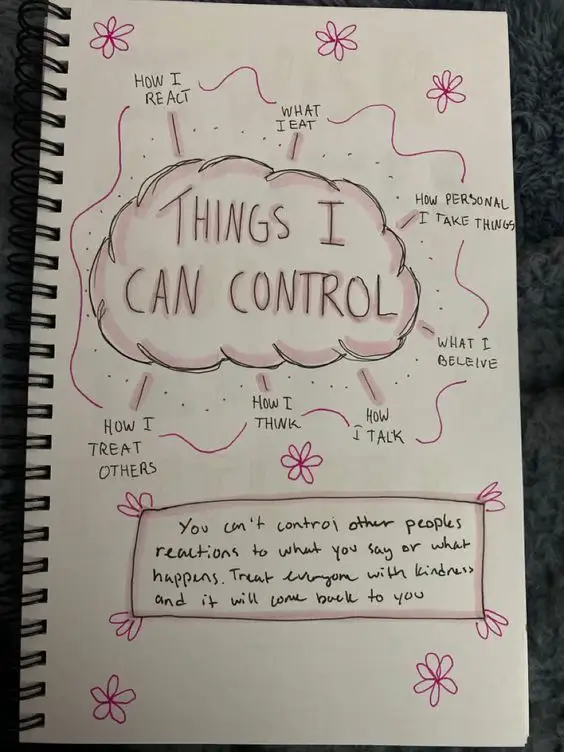 HOW I
REACT
WHAT
I EAT
HOW PERSONAL
I TAKE THINGS
THINGS I
CAN CONTROL
WHAT I
BELEIVE
HOW I
TREAT
OTHERS
HOW I
THINK
HOW
I TALK
You can't control other peoples
reactions to what you say or what
happens. Treat everyone with kindness
and it will come back to you